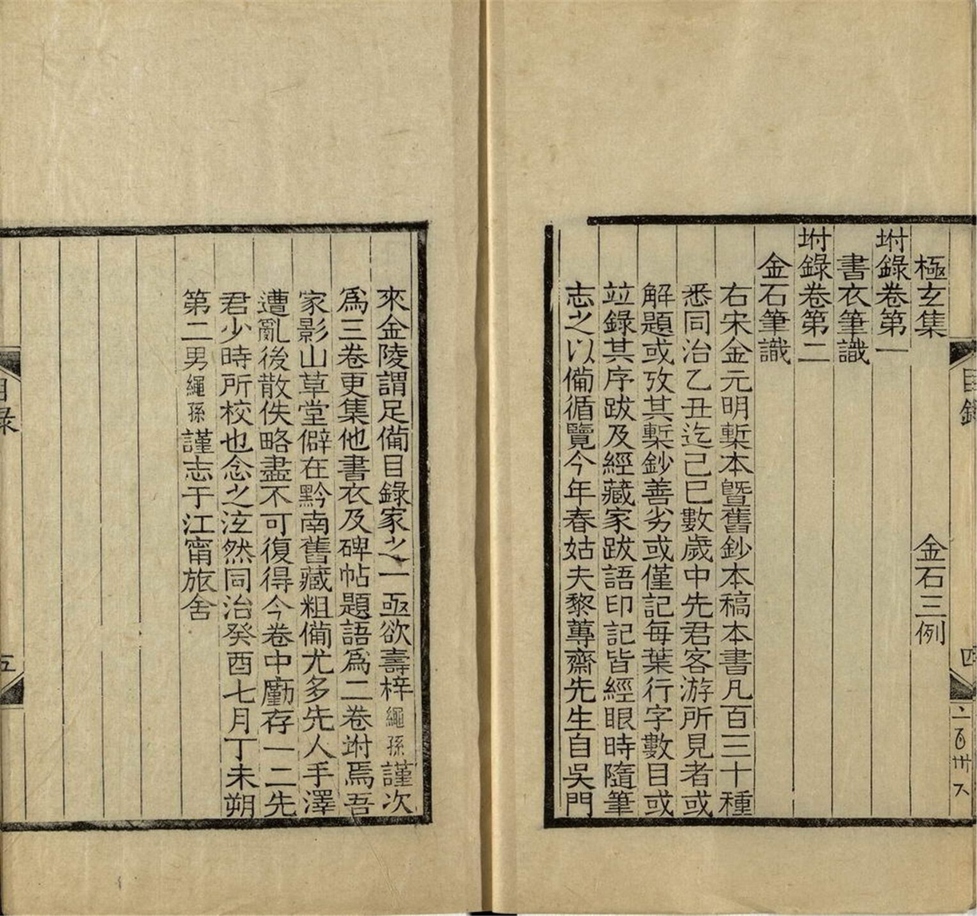 極玄集 金石三例
坿錄卷第一
書衣筆識
坿錄卷第二
金石筆識
右宋金元明槧本暨舊鈔本稿本書凡百三十種
悉同治乙丑迄己巳數歲中先君客游所見者或
解題或攷其槧鈔善劣或僅記每葉行字數目或
竝錄其序跋及經藏家跋語印記皆經眼時隨筆
志之以僃循覽今年春姑夫黎蓴齋先生自吳門
目錄 四
來金陵謂足僃目錄家之一亟欲壽梓繩孫謹次
爲三卷更集他書衣及碑帖題語爲二卷坿焉吾
家影山草堂僻在黔南舊藏粗僃尤多先人手澤
遭亂後散佚略盡不可復得今卷中廑存一二先
君少時所校也念之泫然同治癸酉七月丁未朔
第二男繩孫謹志于江甯旅舍
目錄 五